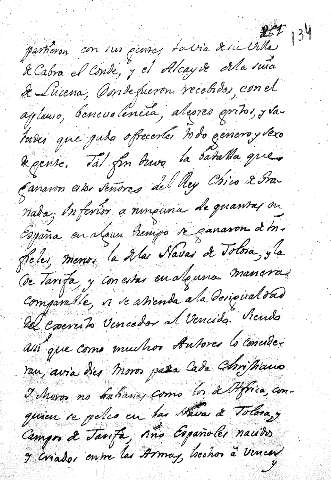 134
partieron con sus gentes la via de su Villa
de Cabra el Conde, y el Alcayde de la suia
de Lucena, Donde fueron recebidos, con el
aplauso, benevolencia, alegres gritos, y sa-
ludes que pudo ofrecerles todo genero y sexo
de gente. Tal fin tuvo la batalla que
ganaron estos Señores del Rey Chico de Gra-
nada, Inferior a ninguna de quantas en
España en algun tiempo se ganaron de In-
fieles, menos la de las Navas de Tolosa, y la
de Tarifa, y con estas en alguna manera
comparable, si se atiende a la desigualdad
del exercito Vencedor al Vencido. Siendo
assi que como muchos Autores lo conside-
ran, avia dies Moros para cada Christiano
Y Moros no bahanas como los de Africa, con-
quien se peleo en las Navas de Tolosa, y
Campos de Tarifa, sino Españoles nacidos
y criados entre las Armas, hechos à Vencer
y